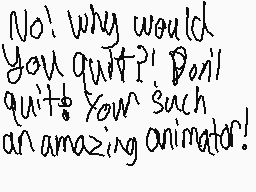 No! why would
you quit?! Don't
quit! Your such
an amazing animator!